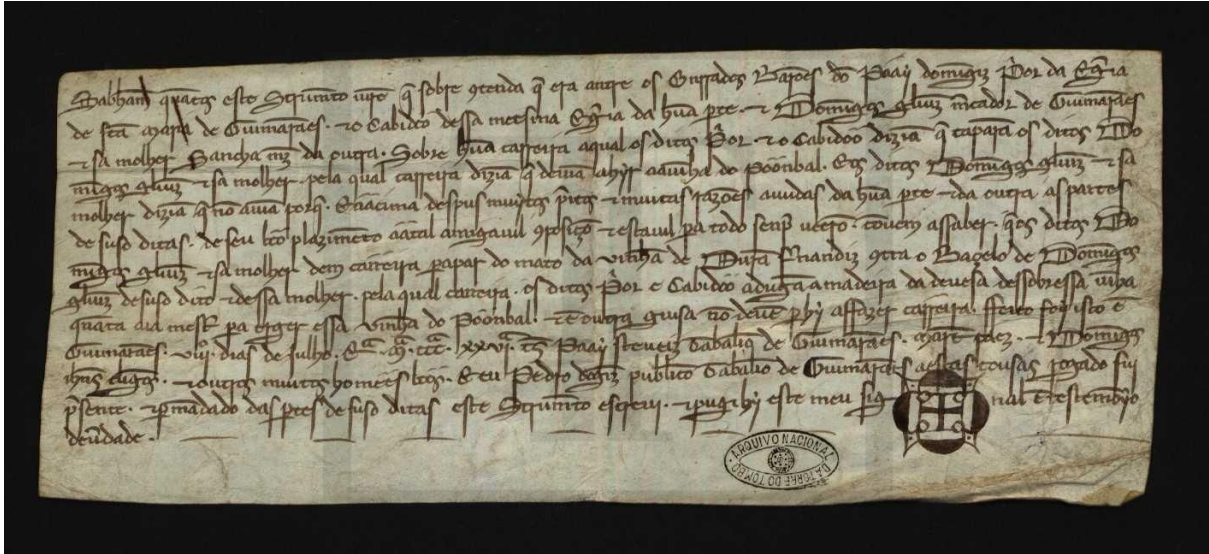 Sabham quãtos este Strumẽto virẽ q̃ sobre ꝯtenda q̃ era antre os Onrrados Barões dõ Paay domĩgiz P̃or da Egr̃ia
de Sc̃a Maria de Guimarães. ⁊ o Cabidoo dessa meesma Egr̃ia da hũa p̃te. ⁊ Domĩgos glĩiz m̃cador de Guimarães
⁊ sa molher Sancha ñiz da outra. Sobre hũa carreira a qual os ditos P̃or. ⁊ o Cabidoo diziã q̃ taparã os ditos Do
mĩgos glĩiz ⁊ sa molher. pela qual carreira diziã q̃ deviã a hyr aa vinha do Põõnbal. E os ditos Domĩgos glĩiz ⁊ sa
molher diziã q̃ nõ aviã porq̃. E aacima despus muytos p̃itos ⁊ muitas razões avudas da hũa p̃te ⁊ da outra. as partes
de suso ditas. de seu bõo plazimẽto a atal amigavil ꝯposiçõ ⁊ estavil pa todo senp̃ veerõ. Convem assaber. q̃ os ditos Do
mĩgos glĩiz ⁊ sa molher dem carreira p̃ a par do mato da vinha de Dur̃a ff̃nandiz ꝯtra o Bacelo de Domĩgos
glĩiz de suso dito ⁊ de ssa molher. pela qual carreira. os ditos P̃or e Cabidoo adugã a madeira da devesa des sobressa vinha
quãta lia mest̃ pa erger essa vinha do Põõnbal. ⁊ ẽ outra guisa nõ devẽ p̃ hy affazer carreira. ffeito foy isto ẽ
Guimarães. viii. dias de Julho. E.ª M.ª CCC.ª XXVI.ª ts̃. Paay Steveiz Tabaliõ de Guimarães. Martĩ paez. ⁊ Domĩgos
ihñs cligos. ⁊ outros muitos homẽes bõos. E eu Pedro dom̃giz publico Tabaliõ de Guimarães a estas cousas rogado fui
p̃sente. ⁊ p̃ mãdado das p̃tes de suso ditas este Strumẽto escrevi. ⁊ pugi hy este meu sig nal ẽ testemõyo
de ṽdade.
ARQUIVO NACIONAL DA TORRE DO TOMBO